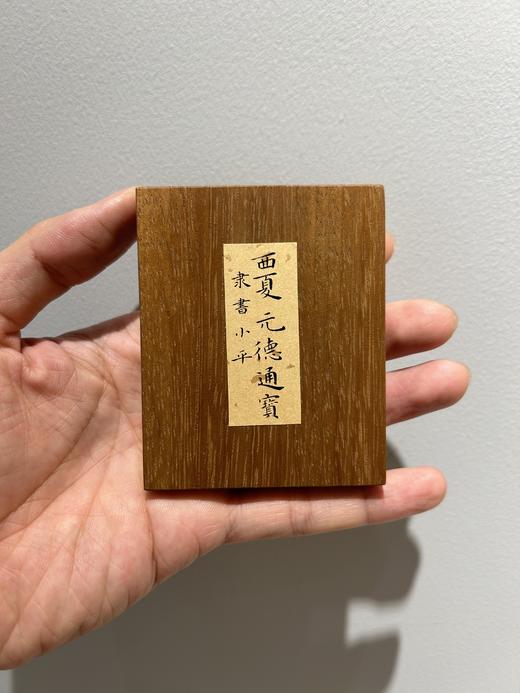 西夏元德通寳
隶書小平